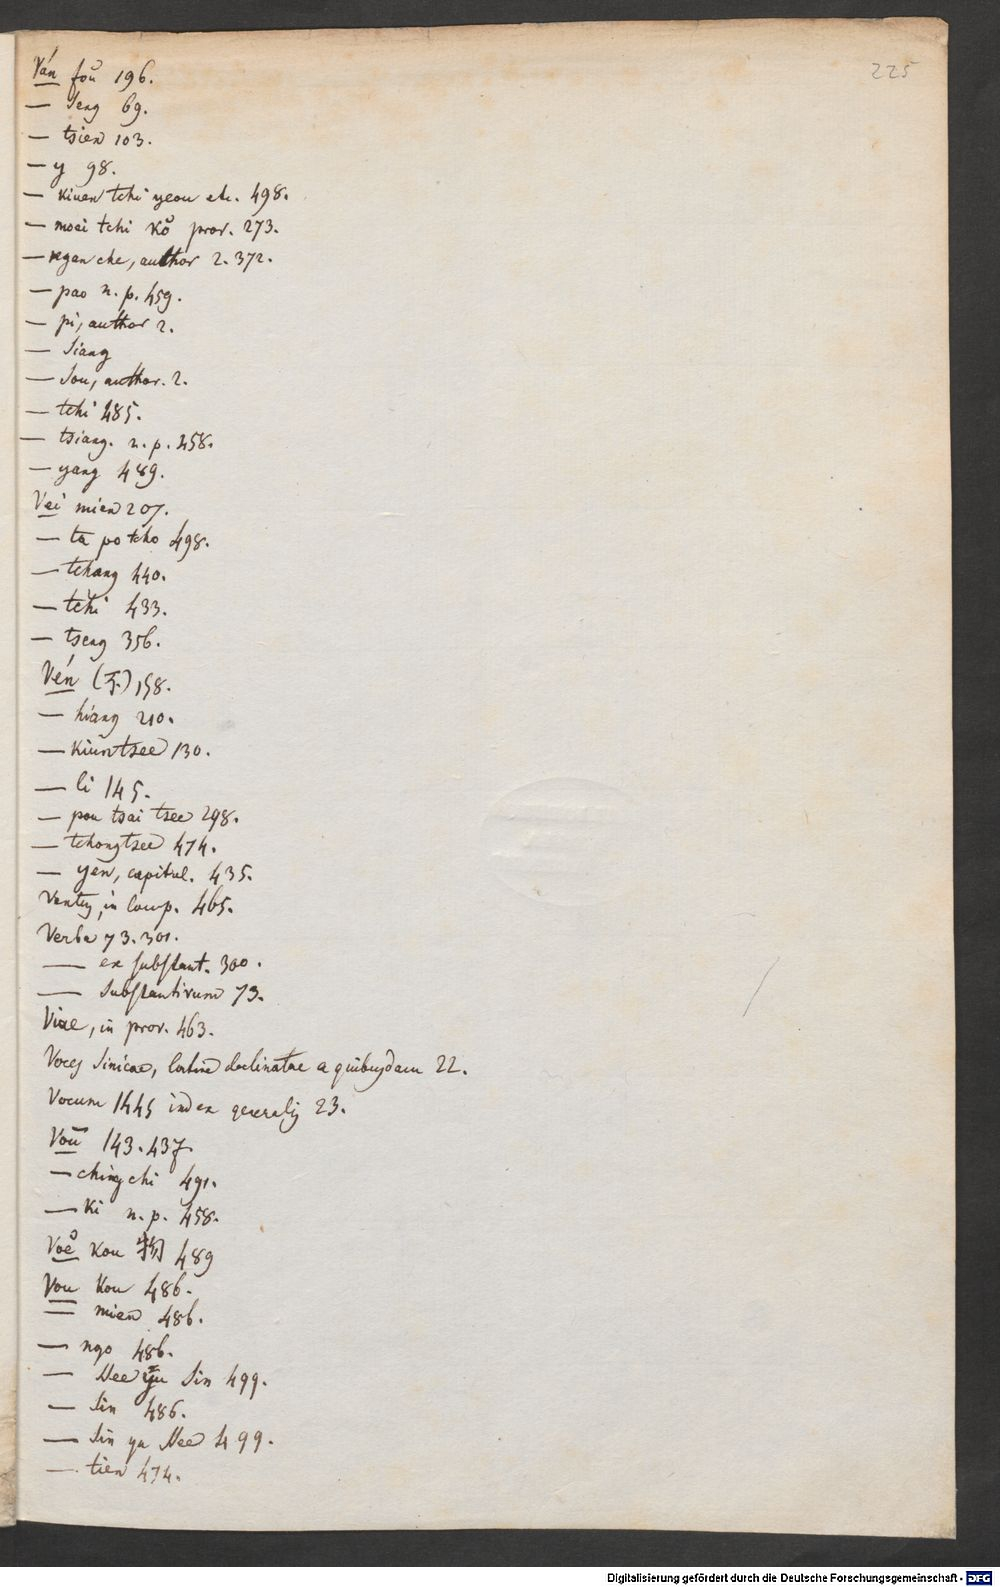 225
Ván foŭ 196.
— seng 69.
— tsien 103.
— y 98.
— kiuen tchi yeou etc. 498.
— moei tchi kŏ prov. 273.
— ngan che, author 2. 372.
— pao n. p. 459.
— pi, author 2.
— siang
— sou, author. 2.
— tchi 485.
— tsiang. n. p. 458.
— yang 489.
Vei mien 207.
— ta po tcho 498.
— tchang 440.
— tchi 433.
— tseng 356.
Vén 158.
— hiang 210.
— kiun tsee 130.
— li 145.
— pou tsai tsee 298.
— tchong tsee 474.
— yen, capitul. 435.
Ventus, in comp. 465.
Verba 73. 301.
— ex substant. 300.
— substantivum 73.
Viae, in prov. 463.
Voces Sinicae, latine declinatae a quibusdam 22.
Vocum 1445 index generalis 23.
Voū 143. 437.
— ching chi 491.
— ki n. p. 458.
Voĕ kou 物 489
Vou kou 486.
— mien 486.
— ngo 486.
— see yu sin 499.
— sin 486.
— sin yu see 499.
— tien 474.
Digitalisierung gefördert durch die Deutsche Forschungsgemeinschaft - DFG